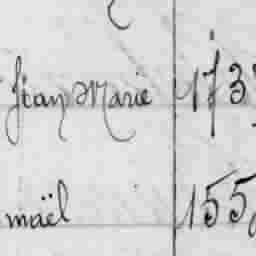 Jean Marie 173
maël 155